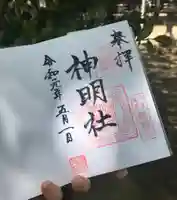 奉拝
神明社
令和元年五月一日